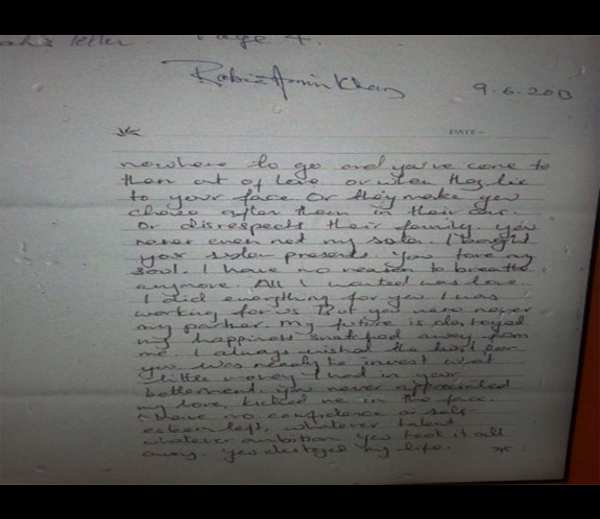 letter Page 4.
Rabia Amin Khan
9.6.2013
DATE
nowhere to go and you've come to
them out of love or when they lie
to your face or they make you
chase after them in their car.
Or disrespects their family. You
never even met my sister. I bought
your sister presents. You tore my
soul. I have no reason to breathe
anymore. All I wanted was love.
I did everything for you I was
working for us. But you were never
my partner. My future is destroyed
my happiness snatched away from
me. I always wished the best for
you was ready to invest what
little money I had in your
betterment. You never appreciated
my love, kicked me in the face.
I have no confidence or self
esteem left, whatever talent
whatever ambition you took it all
away. You destroyed my life.